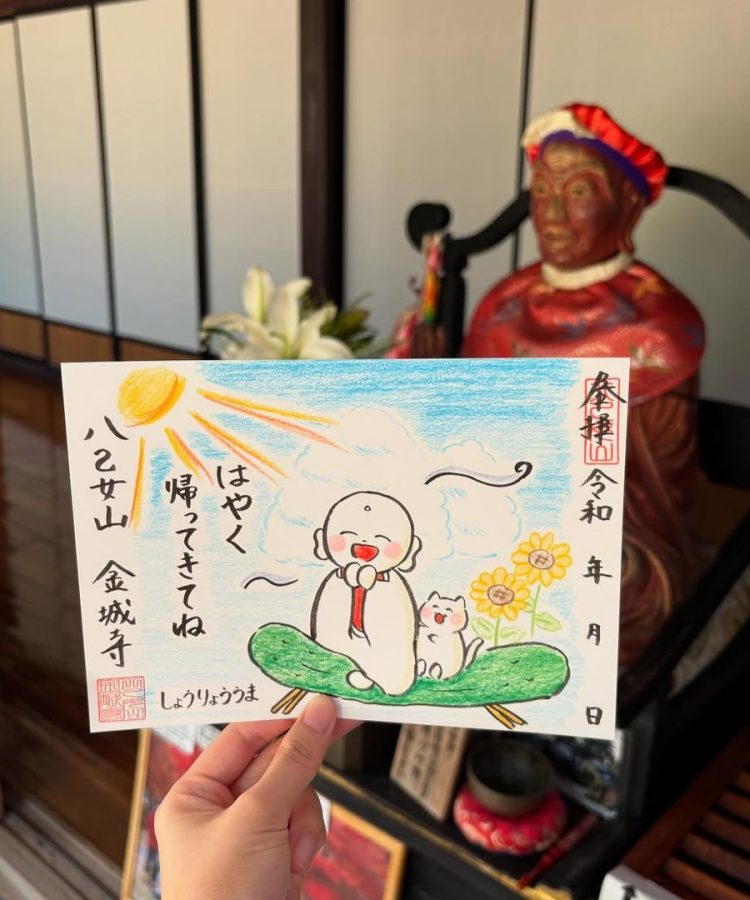 奉拝
令和 年 月 日
はやく
帰ってきてね
八乙女山 金城寺
しょうりょううま